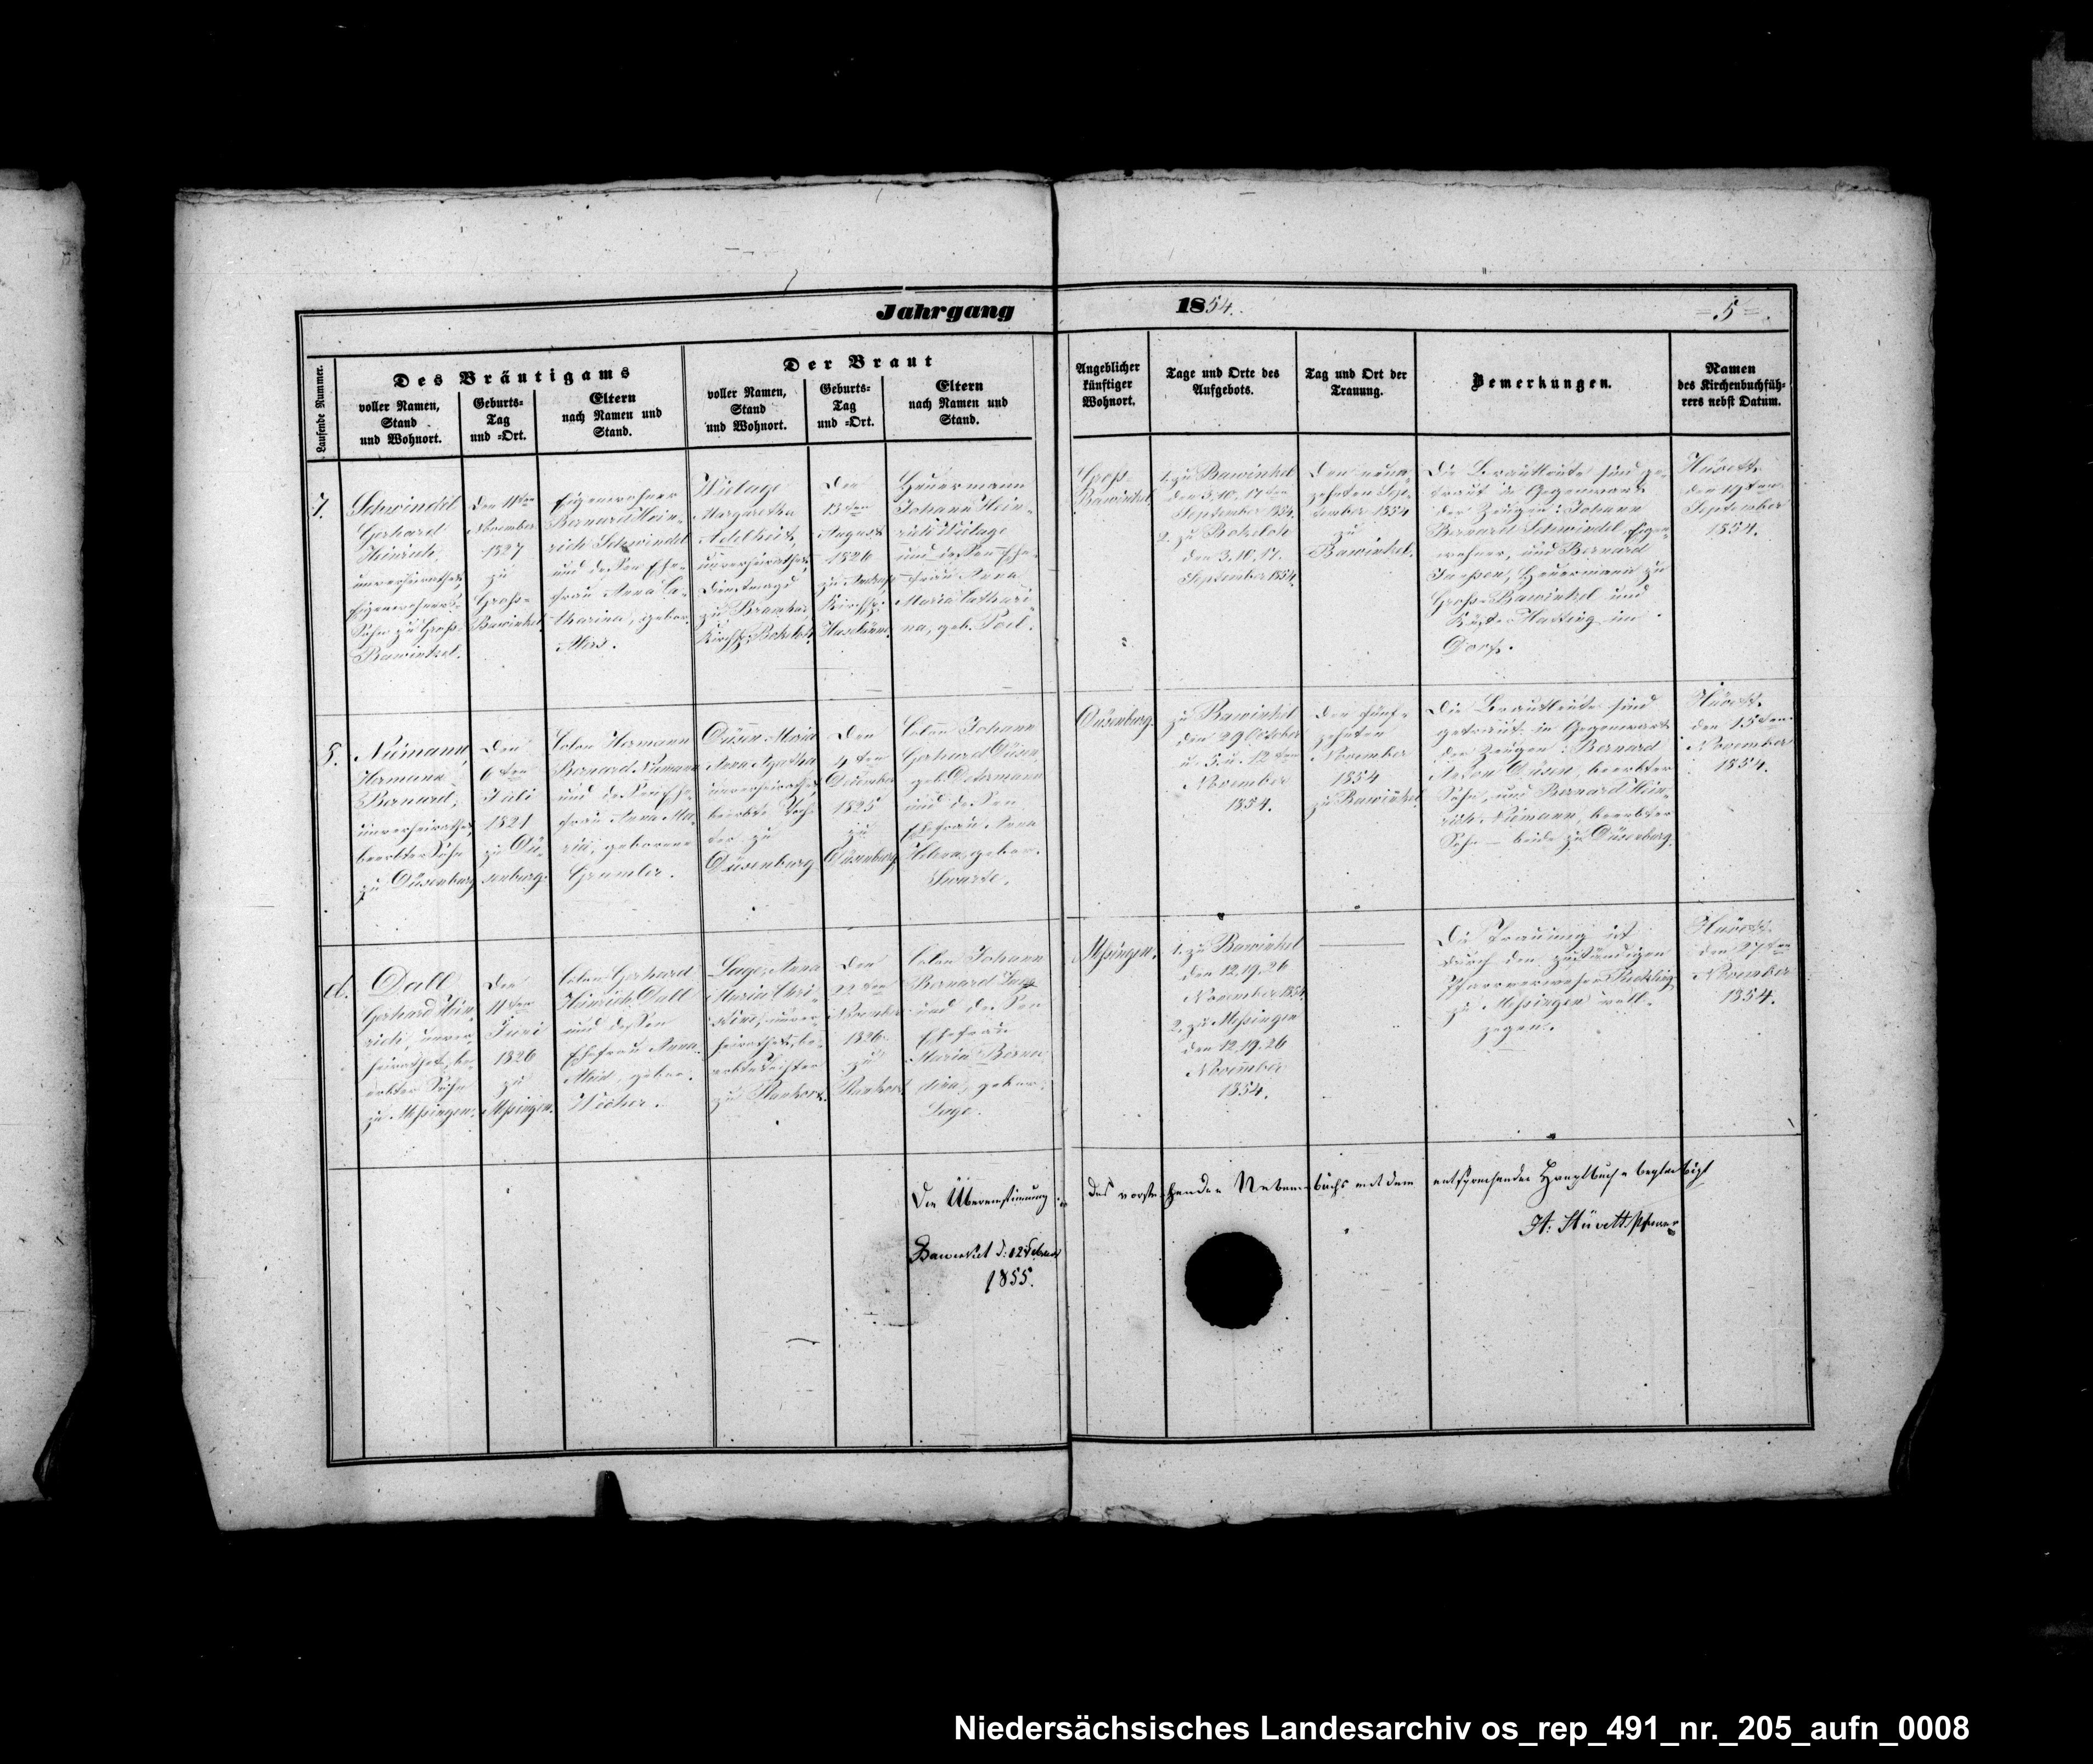 Jahrgang 1854.
= 5 =.
Laufende Nummer.
Des Bräutigams
voller Namen,
Stand
und Wohnort.
Geburts-
Tag
und =Ort.
Eltern
nach Namen und
Stand.
Der Braut
voller Namen,
Stand
und Wohnort.
Geburts-
Tag
und =Ort.
Eltern
nach Namen und
Stand.
Angeblicher
künftiger
Wohnort.
Tage und Orte des
Aufgebots.
Tag und Ort der
Trauung.
Bemerkungen.
Namen
des Kirchenbuchfüh-
rers nebst Datum.
7.
Schwindel
Gerhard
Heinrich,
unverheirathet,
Eigenwohners-
Sohn zu Groß-
Bawinkel.
Den 11ten
November
1827
zu
Groß-
Bawinkel.
Eigenwohner
Bernard Hein-
rich Schwindel
und dessen Ehe-
frau Anna Ca-
tharina, gebor.
Wielage
Margaretha
Adelheit,
unverheirathet,
Dienstmagd
zu
Kirchsp. Bokeloh.
Den
13ten
August
1826
zu
Kirchsp.
Haselünne.
Heuermann
Johann Hein-
rich Wielage
und dessen Ehe-
frau Anna
Maria Cathari-
na, geb.
Groß-
Bawinkel.
1. zu Bawinkel
den 3. 10. 17ten
September 1854.
2. zu Bokeloh
den 3. 10. 17.
September 1854.
Den neun-
zehnten Sep-
tember 1854
zu
Bawinkel.
Die Brautleute sind ge-
traut in Gegenwart
der Zeugen: Johann
Bernard Schwindel, Eigen-
wohner, und Bernard
Heuermann zu
Groß-Bawinkel und
im
Dorf.
Hüvett.
den 19ten
September
1854.
8.
Niemann,
Hermann
Bernard,
unverheirathet,
beerbter Sohn
zu Düsenburg
Den
6ten
Juli
1821
zu Dü-
senburg.
Colon Hermann
Bernard Niemann
und dessen Ehe-
frau Anna Ma-
ria, geborene
Düsen Maria
Anna Agatha
unverheirathet,
beerbte Toch-
ter zu
Düsenburg
Den
4ten
December
1825
zu
Düsenburg.
Colon Johann
Gerhard Düsen,
geb. Determann
und dessen
Ehefrau Anna
Helena, gebor.
Swarte.
Düsenburg.
zu Bawinkel
den 29 October
u. 5. u. 12ten
November
1854.
Den fünf-
zehnten
November
1854
zu Bawinkel.
Die Brautleute sind
getraut in Gegenwart
der Zeugen: Bernard
Anton Düsen, beerbter
Sohn, und Bernard Hein-
rich Niemann, beerbter
Sohn — beide zu Düsenburg.
Hüvett.
den 15ten
November
1854.
d.
Dall
Gerhard Hein-
rich, unver-
heirathet, be-
erbter Sohn
zu Meßingen.
Den
11ten
Juni
1826
zu
Meßingen.
Colon Gerhard
Heinrich Dall
und dessen
Ehefrau Anna
gebor.
Lage, Anna
Maria Chri-
stina, unver-
heirathet, be-
erbte Tochter
zu Plankort.
Den
22ten
November
1826
zu
Plankort.
Colon Johann
Bernard Lage
und dessen
Ehefrau
Maria Berna-
dina, gebor.
Lage.
Meßingen.
1. zu Bawinkel
den 12. 19. 26
November 1854
2. zu Meßingen
den 12. 19. 26
November
1854.
Die Trauung ist
durch den zuständigen
Pfarrverweser
zu Meßingen voll-
zogen.
Hüvett.
den 27ten
November
1854.
Die Übereinstimmung des vorstehenden Nebenbuchs mit dem entsprechenden Hauptbuche beglaubigt
H: Hüvett Pfarrer
Bawinkel d: 12 Februar
1855.
Niedersächsisches Landesarchiv os_rep_491_nr._205_aufn_0008